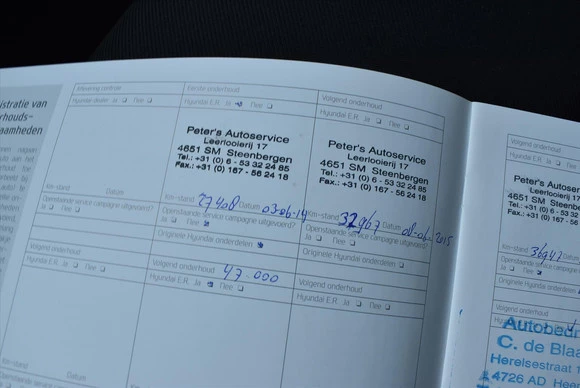 istratie van
rhouds-
aamheden
Aflevering controle
Hyundai dealer Ja Nee
Km-stand Datum
Openstaande service campagne uitgevoerd?
Ja Nee
Eerste onderhoud
Hyundai E.R. Ja Nee
Peter's Autoservice
Leerlooierij 17
4651 SM Steenbergen
Tel.: +31 (0) 6 - 53 32 24 85
Fax.: +31 (0) 167 - 56 24 18
Km-stand 27408 Datum 03-06-14
Openstaande service campagne uitgevoerd?
Ja Nee
Originele Hyundai onderdelen
Volgend onderhoud
Hyundai E.R. Ja Nee
Peter's Autoservice
Leerlooierij 17
4651 SM Steenbergen
Tel.: +31 (0) 6 - 53 32 24 85
Fax.: +31 (0) 167 - 56 24 18
Km-stand 32967 Datum 2015
Openstaande service campagne uitgevoerd?
Ja Nee
Originele Hyundai onderdelen
Volgend onderhoud
Hyundai E.R. Ja Nee
Km-stand Datum
Volgend onderhoud 47.000
Hyundai E.R. Ja Nee
Volgend onderhoud
Hyundai E.R. Ja Nee
Volgend onderhoud
Hyundai E.R. Ja Nee
Peter's Autoser
Leerlooierij
4651 SM Steenb
Tel.: +31 (0) 6 - 53
Fax.: +31 (0) 167 - 56
Km-stand
Openstaande service campagne
Ja Nee
Originele Hyundai
Volgend onderhoud
Autobedr
C. de Blaa
Herelsestraat
4726 AD Heer